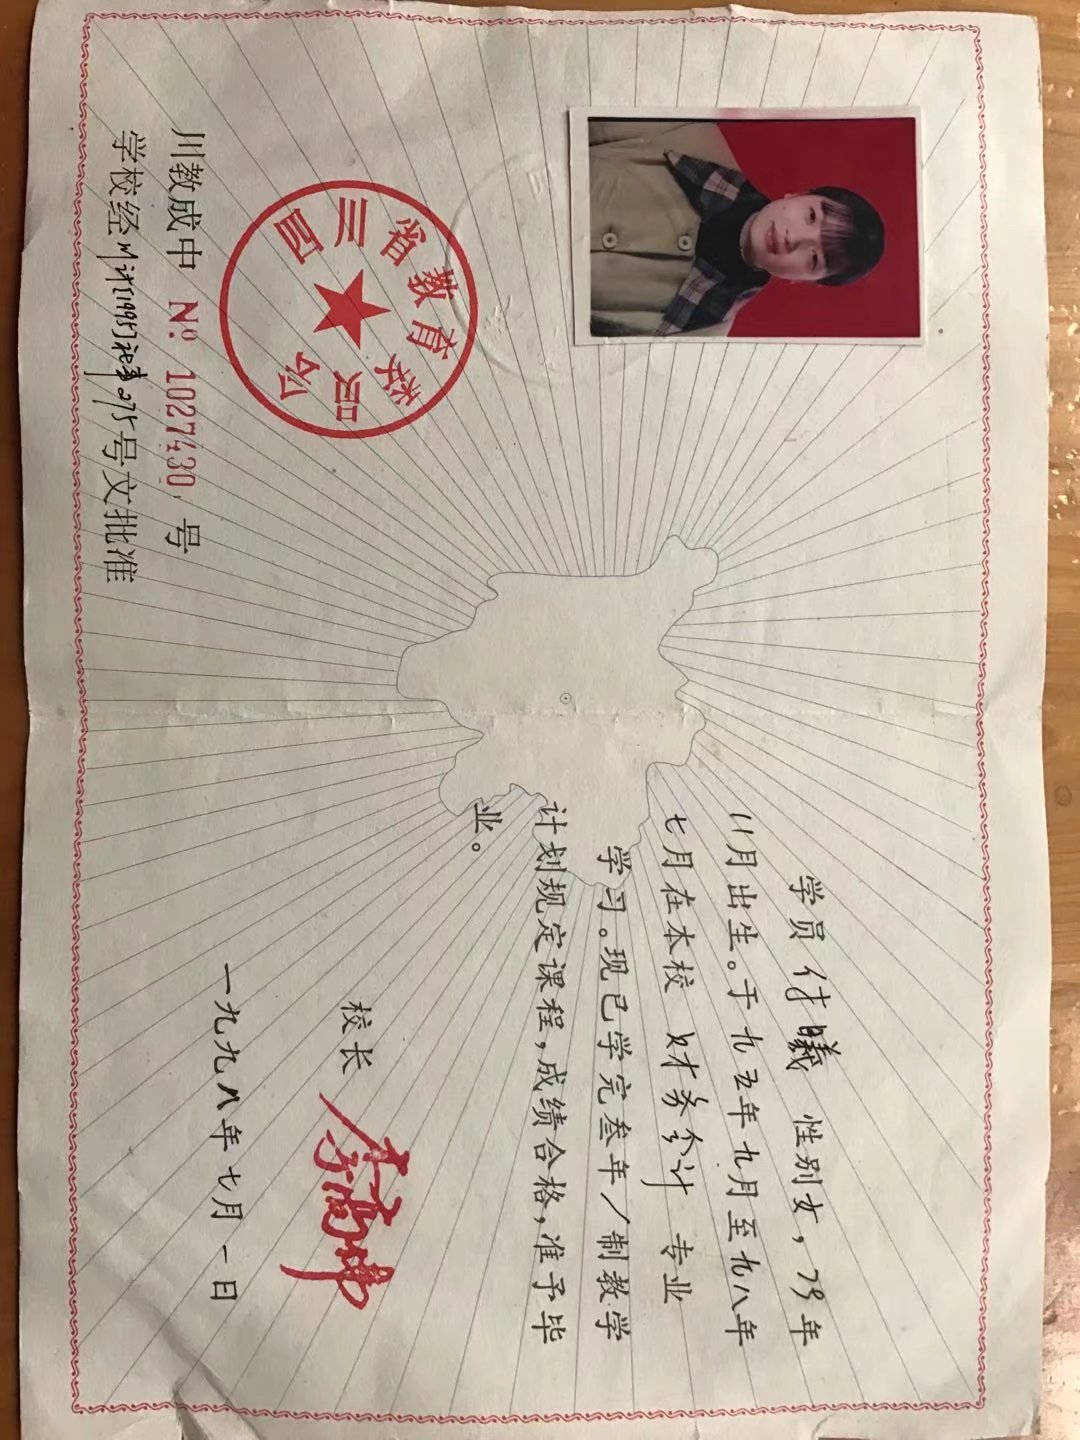 学员付曦 性别女，79年
11月出生。于九五年九月至九八年
七月在本校 财务会计 专业
学习。现已学完叁年/制教学
计划规定课程，成绩合格，准予毕
业。
校长
一九九八年七月一日
四川省教育委员会
川教成中 №: 1027430 号
学校经川计[1995]社事275号文批准